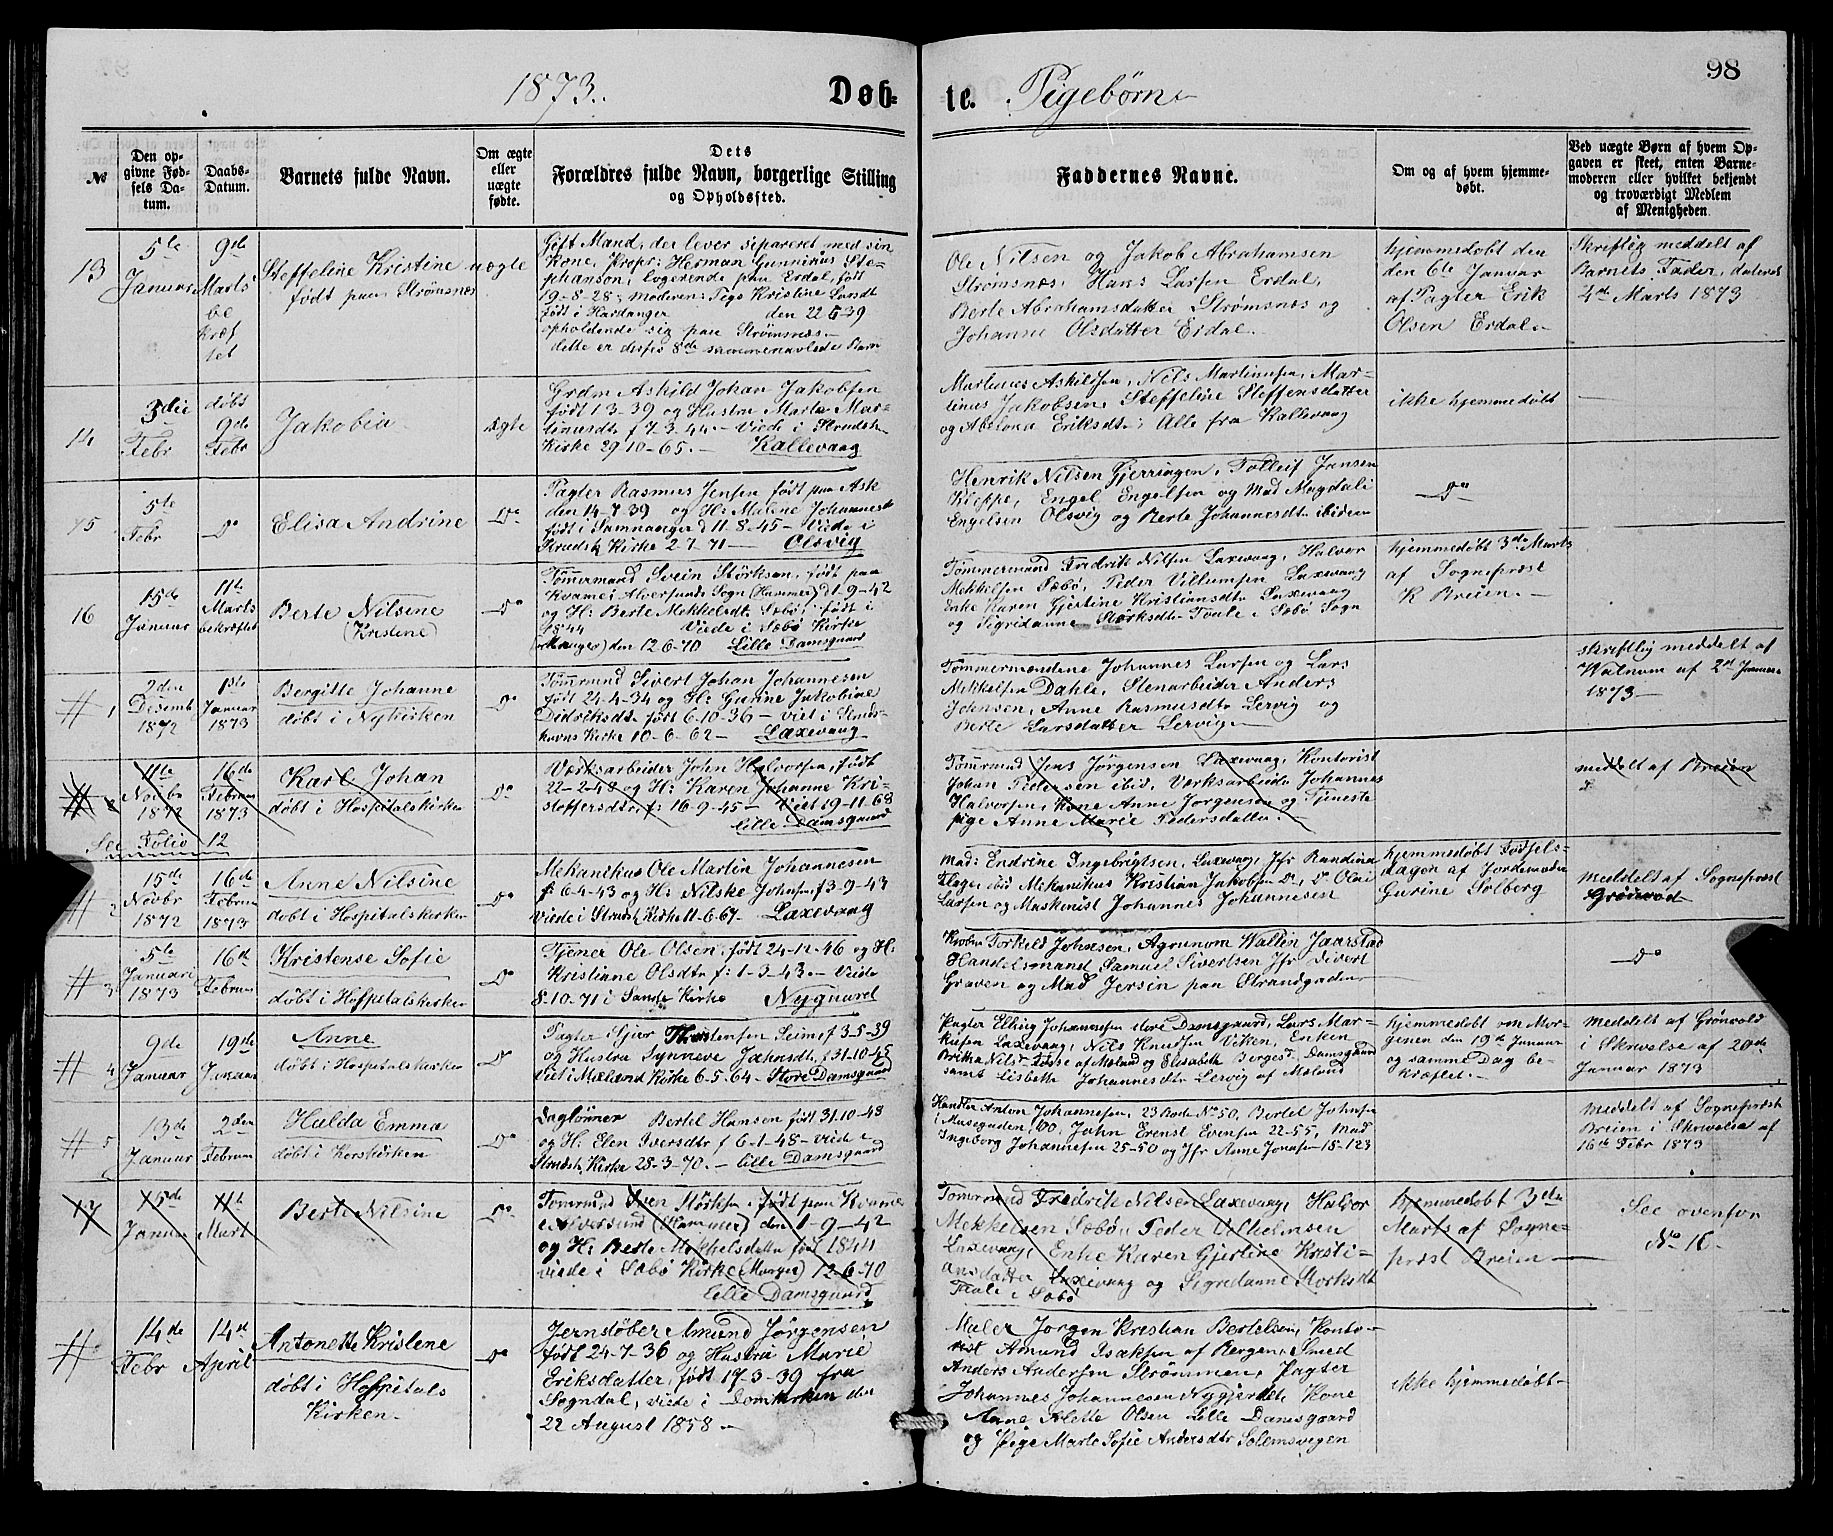 98
1873.
Døb-
te.
Pigebørn
№
Den op-
givne Fød-
sels Da-
tum.
Daabs-
Datum.
Barnets fulde Navn.
Om ægte
eller
uægte
fødte.
Dets
Forældres fulde Navn, borgerlige Stilling
og Opholdssted.
Faddernes Navne.
Om og af hvem hjemme-
døbt.
Ved uægte Børn af hvem Op-
gaven er skeet, enten Barne-
moderen eller hvilket bekjendt
og troværdigt Medlem
af Menigheden.
13
5te
Januar
9de
Marts
be
kræf
tet
Steffeline Kristine
født paa Strømsnæs
uægte
Gift Mand, der lever sipareret med sin
Kone, Propr: Herman Gunnius Ste-
phanson, logerende paa Erdal, født
19-8-28; Moderen: Pige Kristine Larsdt
født i Hardanger den 22 5-39
opholdende sig paa Strømsnæs.
dette er desses 8de sammenavlede Barn
Ole Nilsen og Jakob Abrahamsen
Strømsnæs, Hans Larsen Erdal,
Berte Abrahamsdatter Strømsnæs og
Johanne Olsdatter Erdal.
hjemmedøbt den
den 6te Januar
af Pagter Erik
Olsen Erdal.
Skriftlig meddelt af
Barnets Fader, dateret
4de Marts 1873
14
3die
Febr
døbt
9de
Febr
Jakobia
ægte
Grdm Askild Johan Jakobsen
født 1 3-39 og Hustru Marta Mar-
tinusdt f 7-3-44. Viede i Strudsh
Kirke 29-10-65. Kallevaag
Martinus Askildsen, Nils Martinusen, Mar-
tinus Jakobsen, Steffeline Steffensdatter
og Abelona Eriksdt; Alle fra Kallevaag
ikke hjemmedøbt
15
5te
Febr
Do
Elisa Andrine
Do
Pagter Rasmus Jensen født paa Ask
den 14-7-39 og H: Malene Johannesdt
født i Samnanger d 11-8-45 - Viede i
Strudsh Kirke 2-7-71 - Olsvig
Henrik Nilsen Gjerringen, Tolleif Jansen
Kleppe, Engel Engelsen og Mad Magdali
Engelsen Olsvig og Berte Johannesdt ibidem
Do
16
15de
Januar
11te
Marts
bekræftet
Berte Nilsine
(Kristine)
Do
Tømmermand Svein Störksen, født paa
Kvame i Alversunds Sogn (Hammer) d 1-9-42
og H: Berte Mekkelsdt Sæbö, født i
1844 Viede i Sæbö Kirke
(Manger) den 12 6-70 Lille Damsgaard
Tömmermand Fredrik Nilsen Laxevaag, Halvor
Mekkelsen Sæbö, Peder Villumsen Laxevaag
Enke Karen Gjertine Kristiansdt Laxevaag
og Sigridanne Störksdt Toule i Sæbö Sogn
hjemmedøbt 3de Marts
af Sognepræst
K Breien.
# 1
2den
Desemb
1872
1ste
Januar
1873
Bergitte Johanne
döbt i Nykirken
Do
Tömrmnd Sivert Johan Johannesen
født 24-4-34 og H: Gurine Jakobine
Didriksdt født 6-10-36 - viet i Struds-
havns Kirke 10-6-62 - Laxevaag
Tömmermændene Johannes Larsen og Lars
Mekkelsen Dahle, Stenarbeider Anders
Johnsen, Anne Rasmusdt Lervig og
Berte Larsdatter Lervig
skriftlig meddelt af
Walnum af 2den Januar
1873
# 2
11te
Novbr
1872
16de
Februar
1873
See Folio 12
Karl Johan
döbt i Hospitalskirken
Do
Værksarbeider John Halvorsen, født
22-2-48 og H: Karen Johanne Kri-
stoffersdtr, f: 16-9-45 - Viet 19-11-68
Lille Damsgaard
Tömrmnd Jens Jörgensen Laxevaag, Kontorist
Johan Pedersen ibid, Værksarbeider Johannes
Halvorsen, Kone Anne Jorgensen og Tjeneste
pige Anne Marie Pedersdatter.
meddelt af Breien
# 2
15de
Novbr
1872
16de
Februar
1873
Anne Nilsine
döbt i Hospitalskirken
Do
Mekanikus Ole Martin Johannesen
f: 6-4-43 og H: Nilske Johnsen f 3-9-43
viede i Strudsh Kirke 11-6-67- Laxevaag
Mad: Endrine Ingebrigtsen, Laxevaag, Jfr Randina
Flage, ibid Mekanikus Kristian Jakobsen Do, Do Olai
Larsen og Maskenist Johannes Johannesen
hjemmedøbt Fødsels-
dagen af Jordemoder
Gurine Solberg
meddelt af Sognepræst
Grönvold
# 3
5te
Januari
1873
16de
Februar
Kristense Sofie
döbt i Hospitalskirken
Do
Tjener Ole Olsen, født 24-12-46 og H:
Kristiane Olsdtr f: 1-3-43. - Viede
8-10-71 i Sande Kirke Nygaard
Torkild Johnsen, Agronom Wallin Jaarstad
Handelsmand Samuel Sivertsen Jfr Sivert
Graven og Mad Jersin paa Strandgaden
Do
# 4
9de
Januar
19de
Januar
Anne
döbt i Hospitalskirken
Do
Pagter Sjur Thorstensen Seim f 3-5-39
og Hustru Synneve Jakobsdt. f 31-10-45
Viet i Mæland Kirke 6-5-64 - Store Damsgaard
Pagter Elling Johannesen store Damsgaard, Lars Mar-
kusen Laxevaag, Nils Knudsen Viken, Enken
Brita Nilsd Fosse af Mæland og Elisabeth Bergesd Damsgaard
samt Lisbeth Johannesdt Lervig af Mæland
hjemmedøbt om Mor-
genen den 19de Januar
og samme Dag be-
kræftet.
Meddelt af Grönvold
i Skrivelse af 20de
Januar 1873
# 5
13de
Januar
2den
Februar
Hulda Emma
döbt i Korskirken
Do
Daglönner Bertel Hansen født 31-10-43
og H: Elen Iversdtr f 6-1-48 - viede i
Strudsh, Kirke 28-3-70. - Lille Damsgaard
Handler Anton Johannesen, 23 Rode No 50, Bertel Johnsen
i Musegaden, 60, John Ernst Evensen 22-55, Mad
Ingeborg Johannesen 25-50 og Jfr Anne Jonasen 18-123
Meddelt af Sognepræst
Breien i Skrivelse af
16de Febr 1873
17
15de
Januar
11te
Mart
Berte Nilsine
Do
Tömrmnd Sven Störksen, født paa Kvame
i Alversund (Hammer) den 1-9-42
og H: Berte Mekkelsdatter født 1844
viede i Sæbö Kirke (Manger) 12-6-70
Lille Damsgaard
Tömrmnd Fredrik Nilsen Laxevaag, Halvor
Mekkelsen Sæbö, Peder Vilhelmsen
Laxevaag, Enke Karen Gjertine Kristi-
ansdatter Laxevaag og Sigridanne Storksdt
Toule i Sæbö
hjemmedøbt 3de
Marts af Sogne-
præst Breien
See ovenfor
No 16.
#
14de
Febr
14de
April
Antonette Kristene
döbt i Hospitals
Kirken.
Do
Jernstøber Amund Jörgensen
født 24-7-36 og Hustru Marie
Eriksdatter, født 17-3-39 fra
Sogndal, viede i Domkirken den
22 August 1858.
Maler Jorgen Krestian Bertelsen, Konto-
rist Amund Isaksen af Bergen, Smed
Anders Andersen Strömmen, Pagter
Johannes Johannesen Nygjerdet, Kone
Anne Alette Olsen Lille Damsgaard
og Pige Marte Sofie Andersdtr Solemsvigen
ikke hjemmedøbt